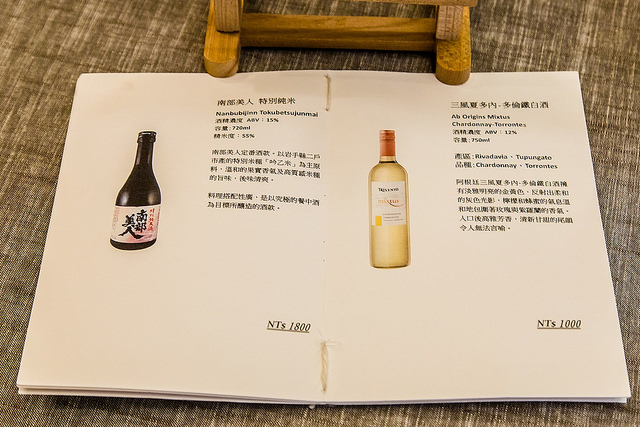 南部美人 特別純米
Nanbubijinn Tokubetsujunmai
酒精濃度 ABV：15%
容量：720ml
精米度：55%
南部美人定番酒款，以岩手縣二戶
市產的特別米種「吟乙米」為主原
料，溫和的果實香氣及高質感米種
的旨味，後味清爽。
料理搭配性廣，是以究極的餐中酒
為目標所釀造的酒款。
南部美人
NT$ 1800
三風夏多內-多倫鐵白酒
Ab Origins Mixtus
Chardonnay-Torrontes
酒精濃度 ABV：12%
容量：750ml
產區：Rivadavia、Tupungato
品種：Chardonnay、Torrontes
阿根廷三風夏多內-多倫鐵白酒擁
有淡雅明亮的金黃色，反射出柔和
的灰色光影，檸檬和蜂蜜的氣息溫
和地包圍著玫瑰與紫羅蘭的香氣，
入口後高雅芳香，清新甘甜的尾韻
令人無法言喻。
TRIVENTO
NT$ 1000